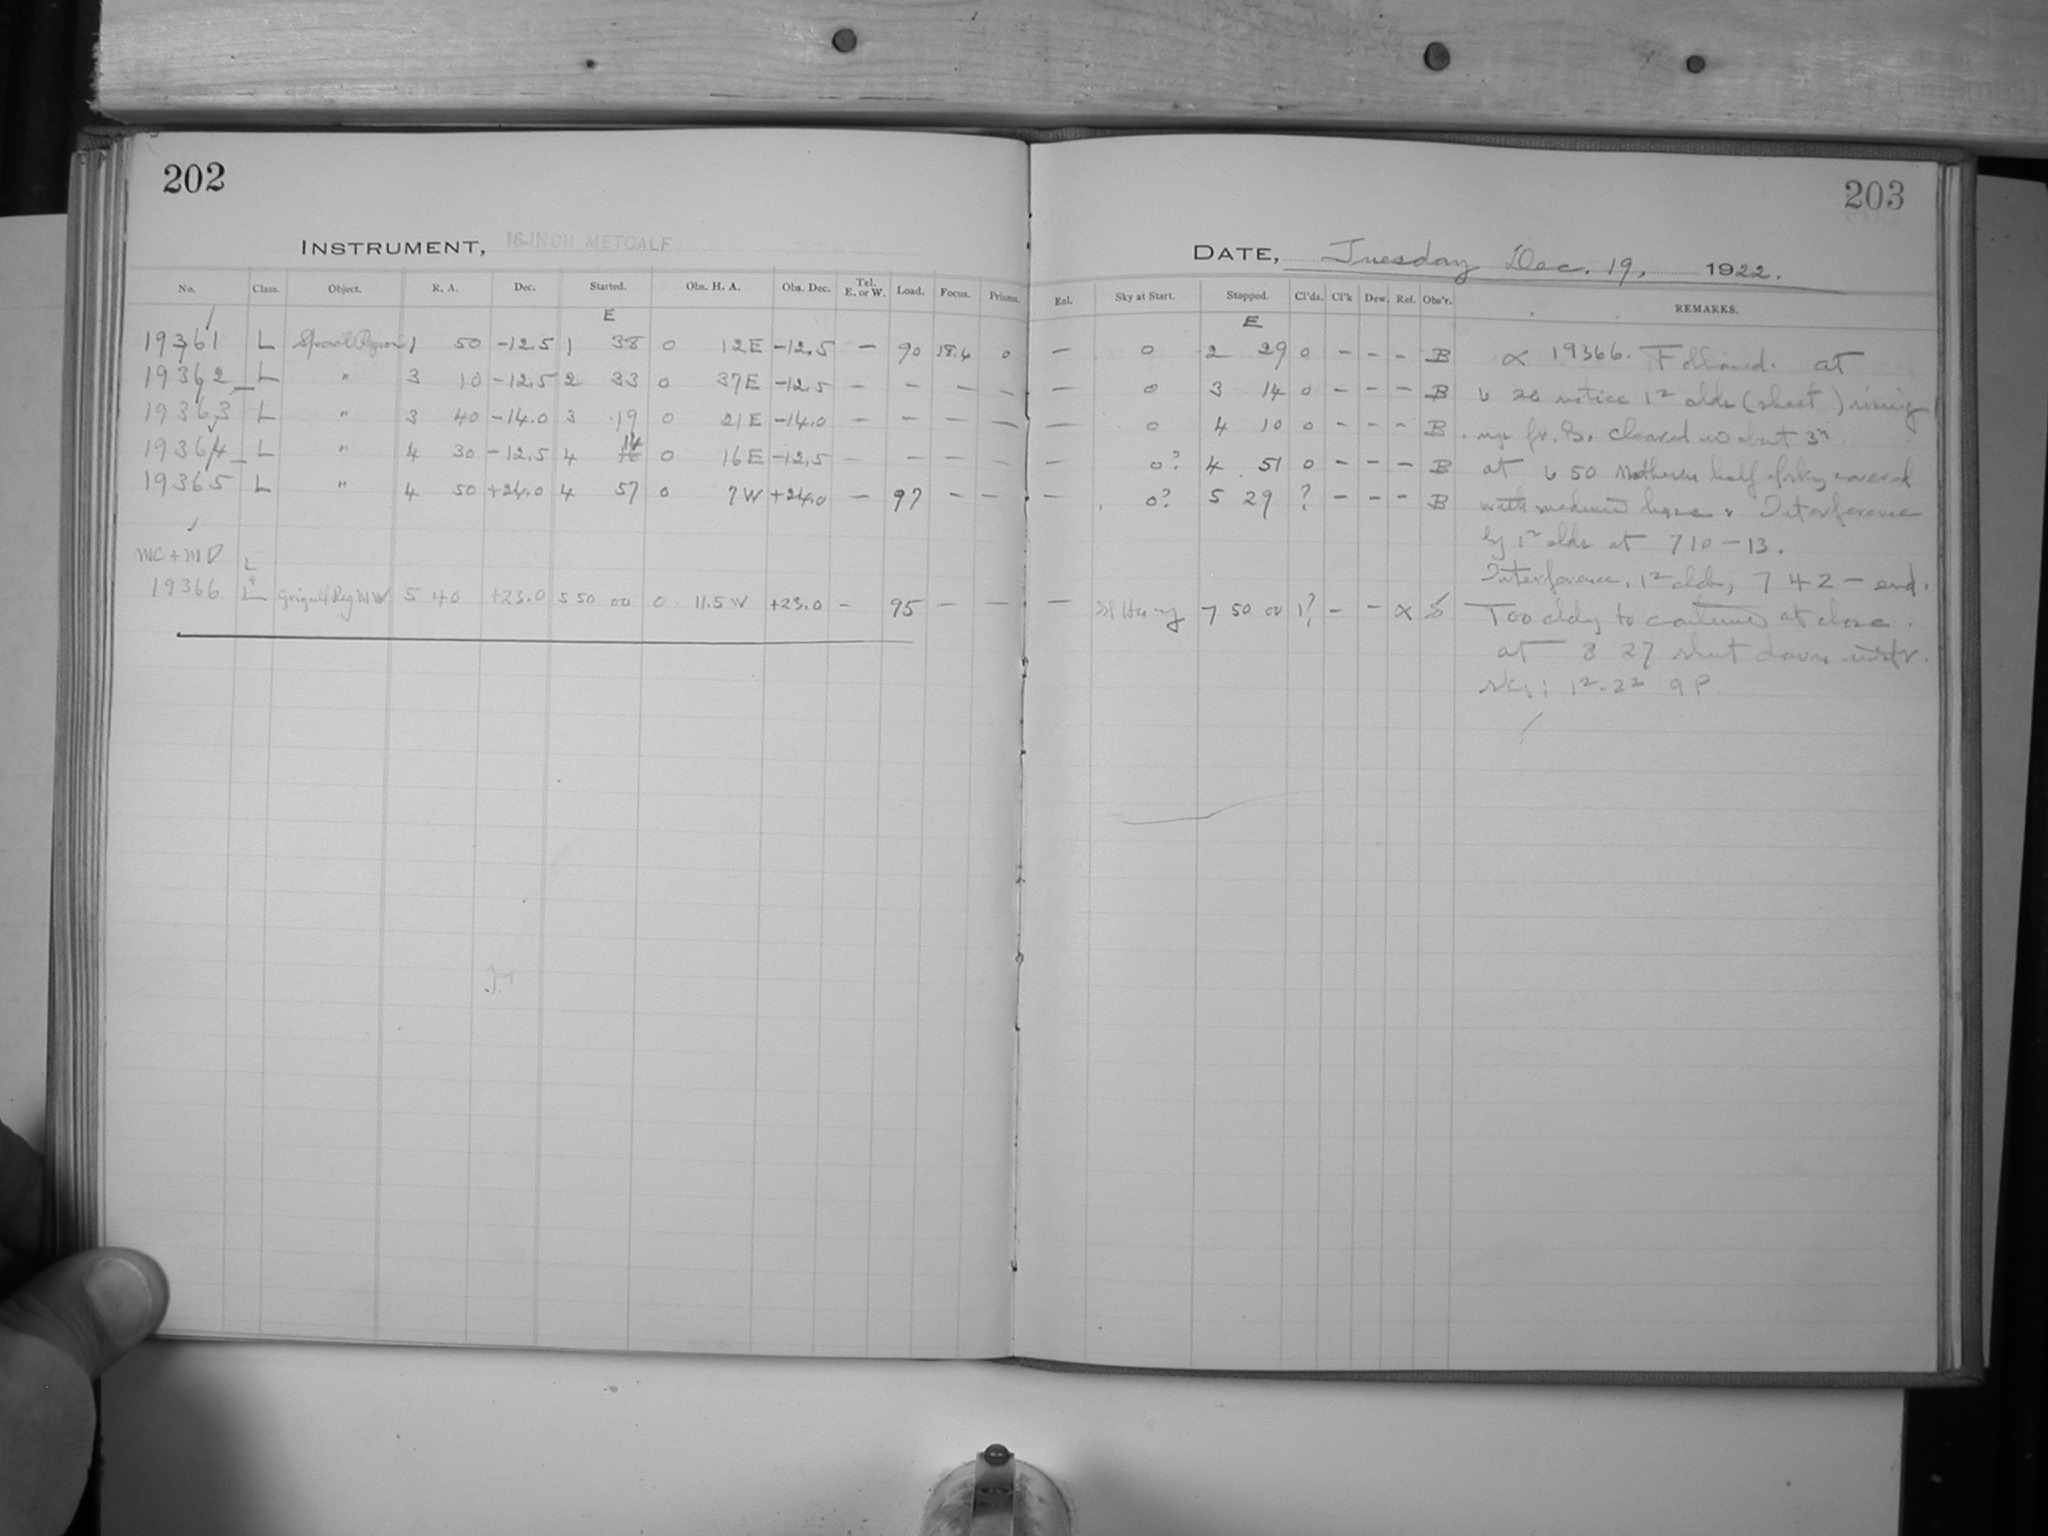 202
INSTRUMENT, 16-INCH METCALF
No. Class. Object. R. A. Dec. Started. Obs. H. A. Obs. Dec. Tel. E. or W. Load. Focus. Prisms.
E
19361 L 1 50 -12.5 1 38 0 12E -12.5 — 90 18.4 0
19362 L " 3 10 -12.5 2 33 0 37E -12.5 — — — —
19363 L " 3 40 -14.0 3 19 0 21E -14.0 — — — —
19364 L " 4 30 -12.5 4 14 0 16E -12.5 — — — —
19365 L " 4 50 +24.0 4 57 0 7W +24.0 — 97 — —
MC + MD L +
19366 L 5 40 +23.0 5 50 00 0 11.5 W +23.0 — 95 — —
203
DATE, Tuesday Dec. 19, 1922.
Eal. Sky at Start. Stopped. Cl'ds. Cl'k Dew. Ref. Obs'r. REMARKS.
E
— 0 2 29 0 - - - B α 19366. Followed. at
— 0 3 14 0 - - - B 20 notice 1² clds (sheet) rising
— 0 4 10 0 - - - B fr. S. cleared in about 3ᵐ.
— 0? 4 51 0 - - - B at 50 Northern half of sky covered
— 0? 5 29 ? - - - B with medium haze. Interference
by 1² clds at 7 10 - 13.
Interference, 1² clds, 7 42 - end.
— Sl Hazy 7 50 00 1? - - α Too cldy to continue at close.
at 8 27 shut down instr.
sky: 1²-2² 9 P.